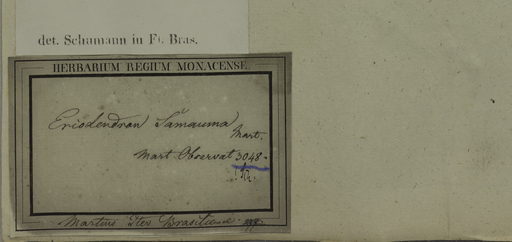 det. Schumann in Fl. Bras.
HERBARIUM REGIUM MONACENSE.
Eriodendron Sămauma
Mart.
Mart. Observat 3048.
Martius Iter Brasiliense